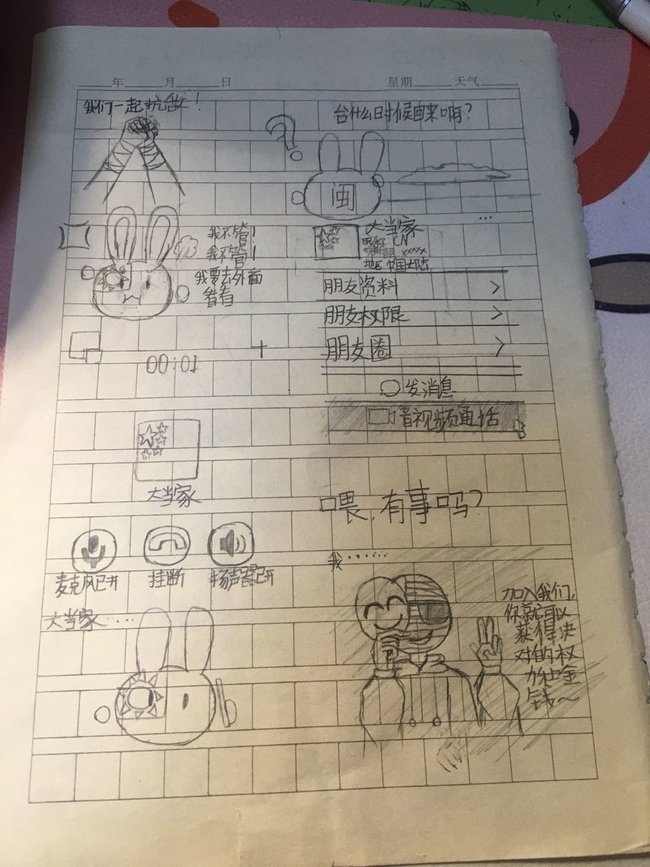 年 月 日 星期 天气
我们一起抗敌!
台什么时候回来啊?
?
闽
我不管!
我不管!
我要去外面
看看
...
大当家
CN
地区 中国大陆
朋友资料
朋友权限
朋友圈
发消息
音视频通话
00:01
+
大当家
麦克风已开
挂断
扬声器已开
喂,有事吗?
大当家……
我……
加入我们,
你就可以
获得绝
对的权
力和金
钱~